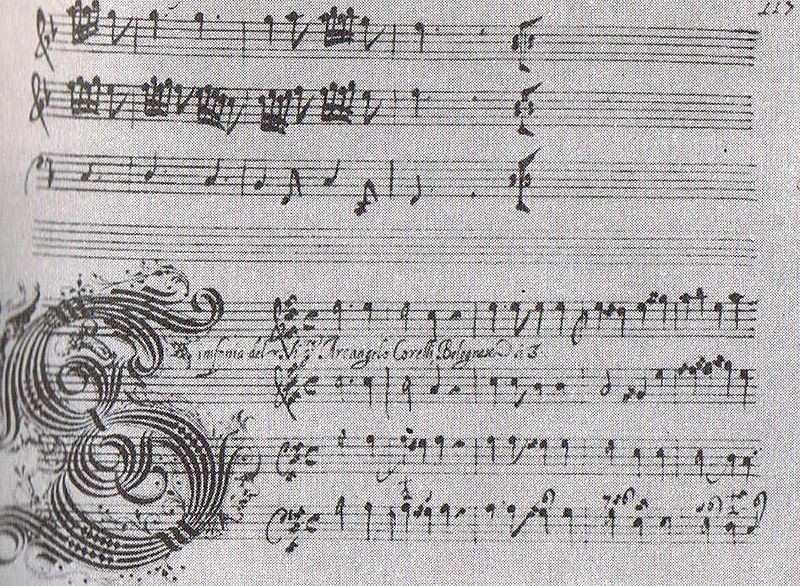 117
Sinfonia del Sig.r Arcangelo Corelli Bolognese à 3